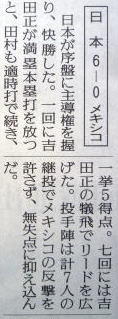 日本6－0メキシコ
日本が序盤に主導権を握
り、快勝した。一回に吉
田正が満塁本塁打を放つ
と、田村も適時打で続き、
一挙5得点。七回には吉
田正の犠飛でリードを広
げた。投手陣は計7人の
継投でメキシコの反撃を
許さず、無失点に抑え込ん
だ。